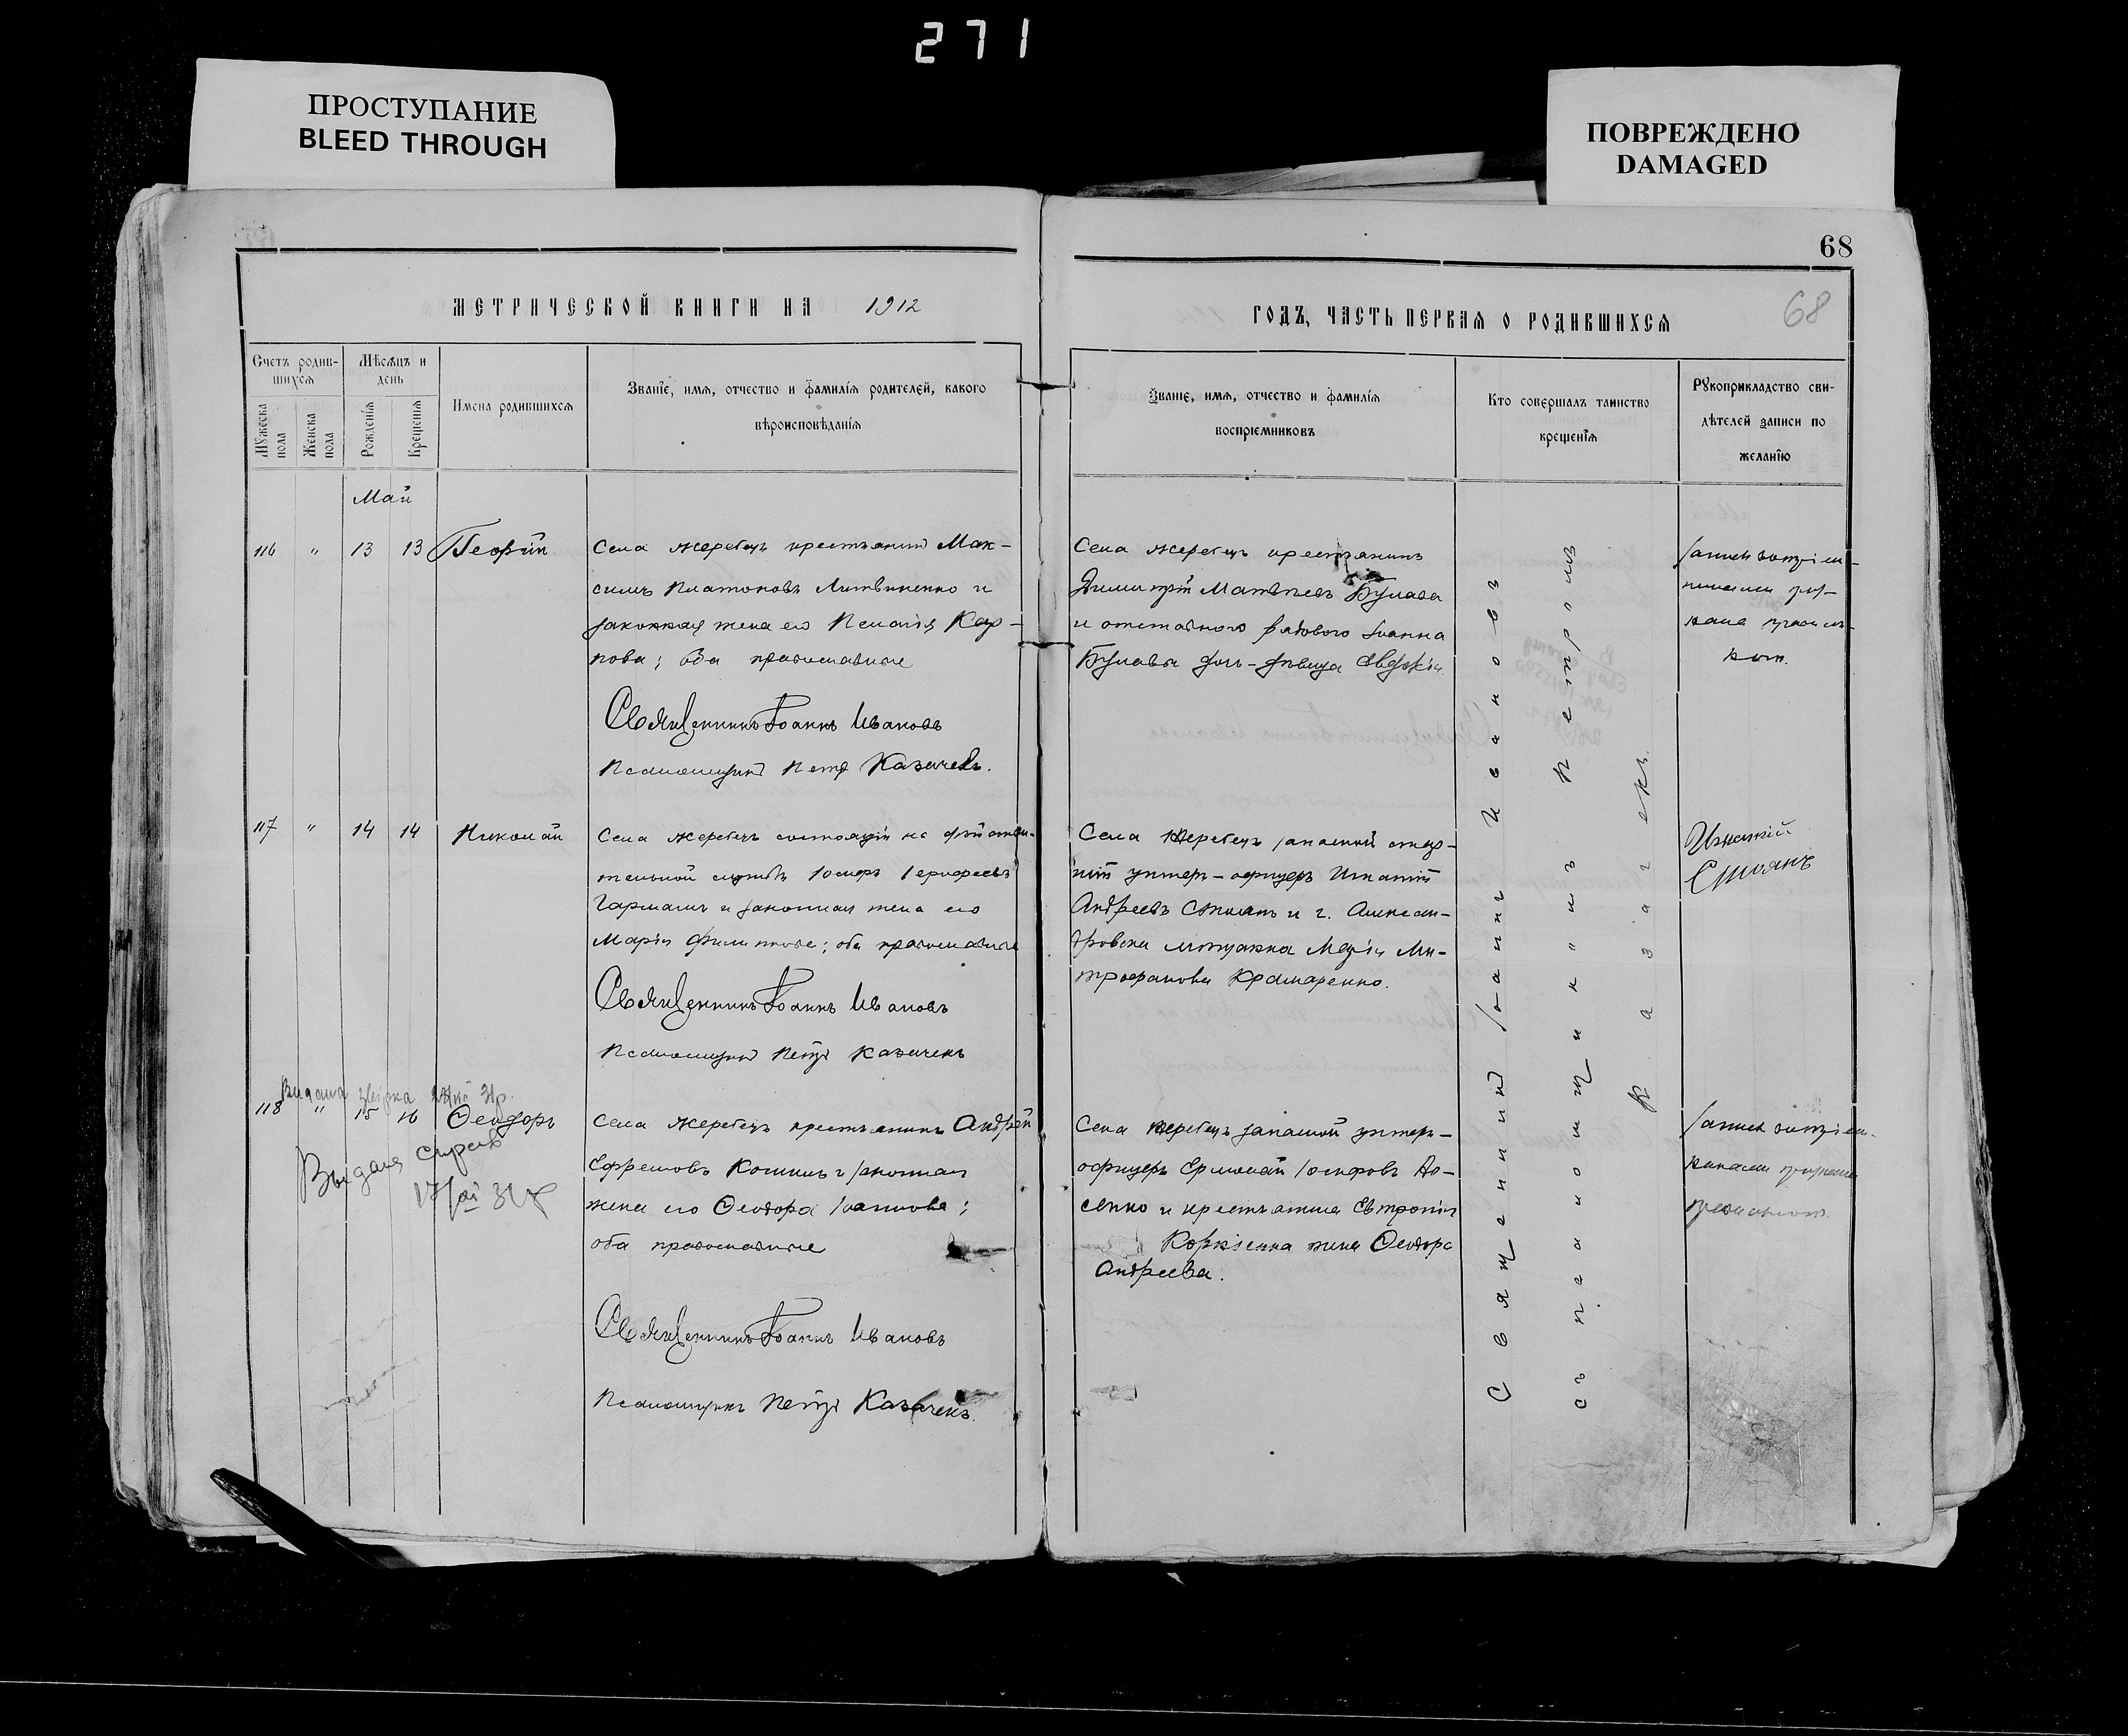 271
ПРОСТУПАНИЕ
BLEED THROUGH
ПОВРЕЖДЕНО
DAMAGED
68
МЕТРИЧЕСКОЙ КНИГИ НА 1912
ГОДЪ, ЧАСТЬ ПЕРВАЯ О РОДИВШИХСЯ
68
Счетъ родив-
шихся
Мужеска пола
Женска пола
Мѣсяцъ и
день
Рожденія
Крещенія
Имена родившихся
Званіе, имя, отчество и фамилія родителей, какого
вѣроисповѣданія
Званіе, имя, отчество и фамилія
воспріемниковъ
Кто совершалъ таинство
крещенія
Рукоприкладство сви-
дѣтелей записи по
желанію
Май
116 " 13 13
Села Жеребецъ крестьянинъ Мак-
симъ Платоновъ Литвиненко и
законная жена его Пелагія Кар-
пова; оба православные
Священникъ Іоаннъ Ивановъ
Псаломщикъ Петръ Казачекъ.
Села Жеребецъ крестьянинъ
Димитрій Матвѣевъ Булава
и отставного рядового Іоанна
Булавы дочь-дѣвица Евдокія
117 " 14 14 Николай
Села Жеребецъ состоящій на дѣйстви-
тельной службѣ Іосифъ
и законная жена его
Марія Филиппова; оба православные
Священникъ Іоаннъ Ивановъ
Псаломщикъ Петръ Казачекъ
Села Жеребецъ запасной стар-
шій унтеръ-офицеръ Игнатій
Андреевъ Стоянъ и г. Алексан-
дровска мѣщанка Марія Ми-
трофанова Крамаренко.
Игнатій
Стоянъ
118 " 15 16 Ѳеодоръ
Выдана
Села Жеребецъ крестьянинъ Андрей
Ефремовъ и законная
жена его Ѳеодора Іоаннова;
оба православные
Священникъ Іоаннъ Ивановъ
Псаломщикъ Петръ Казачекъ.
Села Жеребецъ запасной унтеръ-
офицеръ Ермолай Іосифовъ
и крестьянина Евтропія
жена Ѳеодора
Андреева.
Священникъ Іоаннъ Ивановъ
съ псаломщикомъ Петромъ
Казачекъ.